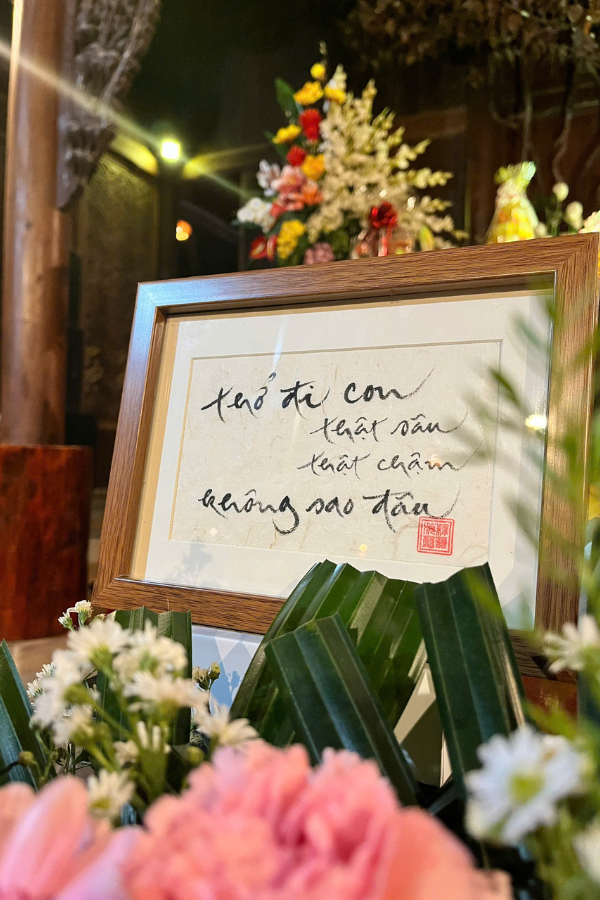 thở đi con
thật sâu
thật chậm
không sao đâu